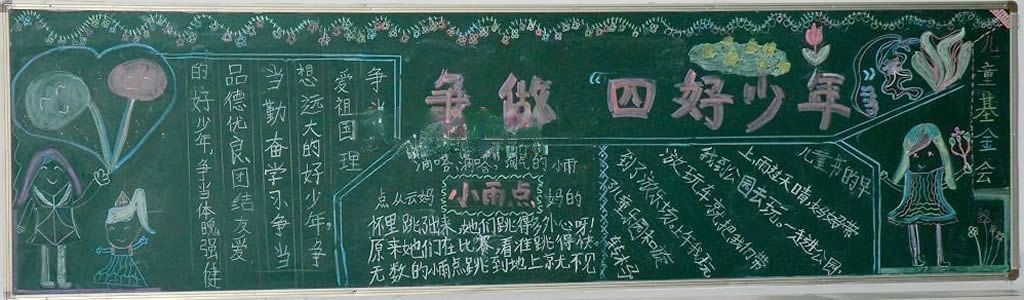 争做“四好少年
争当
爱祖国 理
想远大的好少年,争
当勤奋学习争当
品德优良,团结友爱
的好少年,争当体魄强健
滴嗒,滴嗒,淘气的小雨
点从云妈 妈的
小雨点
怀里跳出来,她们跳得多开心呀!
原来她们在比赛,看谁跳得快
无数的小雨点跳到地上就不见
儿童节的早
上雨过天晴,妈妈带
我到公园去玩。一走进公园,
就把我们带
到了游乐场,上午我玩
转木马
儿童基金会